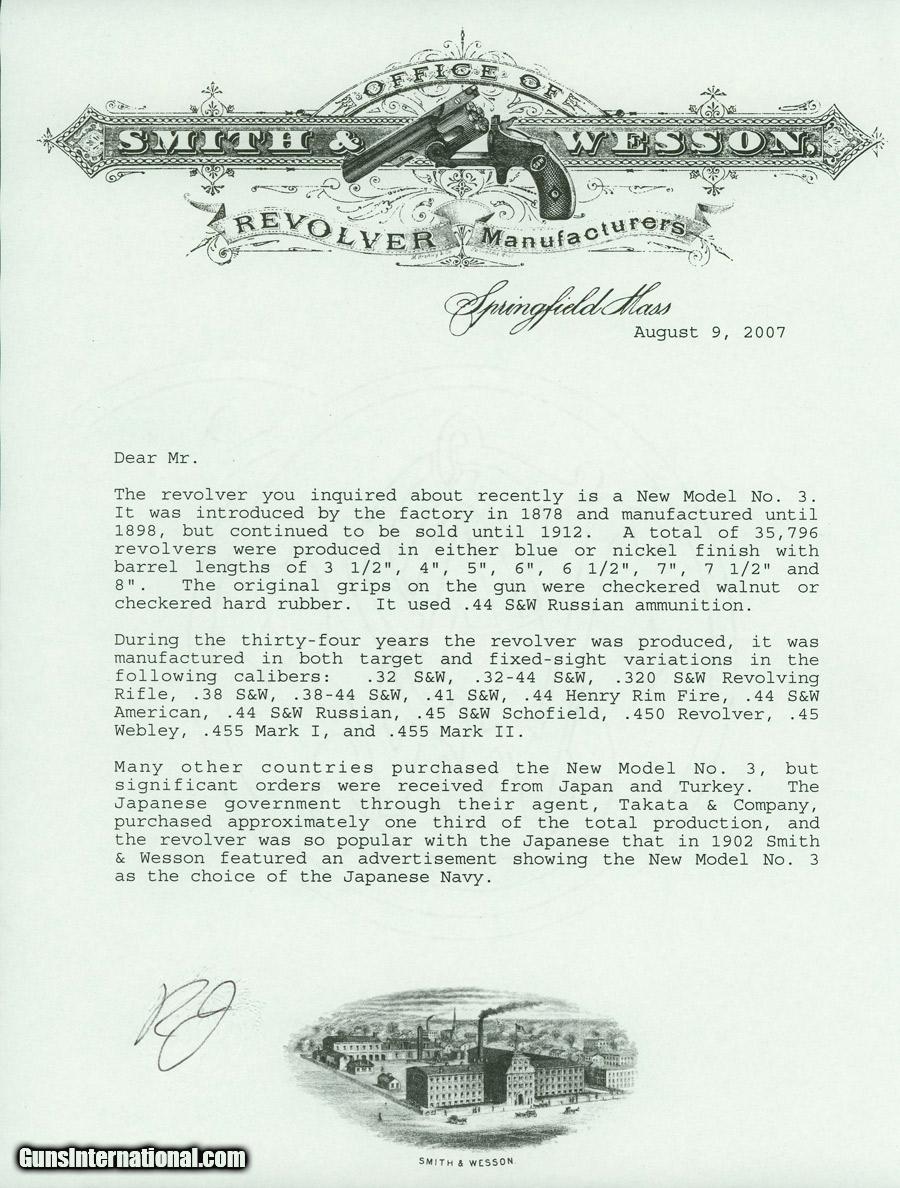 OFFICE OF
SMITH & WESSON,
REVOLVER Manufacturers
Springfield Mass
August 9, 2007
Dear Mr.
The revolver you inquired about recently is a New Model No. 3.
It was introduced by the factory in 1878 and manufactured until
1898, but continued to be sold until 1912. A total of 35,796
revolvers were produced in either blue or nickel finish with
barrel lengths of 3 1/2", 4", 5", 6", 6 1/2", 7", 7 1/2" and
8". The original grips on the gun were checkered walnut or
checkered hard rubber. It used .44 S&W Russian ammunition.
During the thirty-four years the revolver was produced, it was
manufactured in both target and fixed-sight variations in the
following calibers: .32 S&W, .32-44 S&W, .320 S&W Revolving
Rifle, .38 S&W, .38-44 S&W, .41 S&W, .44 Henry Rim Fire, .44 S&W
American, .44 S&W Russian, .45 S&W Schofield, .450 Revolver, .45
Webley, .455 Mark I, and .455 Mark II.
Many other countries purchased the New Model No. 3, but
significant orders were received from Japan and Turkey. The
Japanese government through their agent, Takata & Company,
purchased approximately one third of the total production, and
the revolver was so popular with the Japanese that in 1902 Smith
& Wesson featured an advertisement showing the New Model No. 3
as the choice of the Japanese Navy.
SMITH & WESSON.
GunsInternational.com